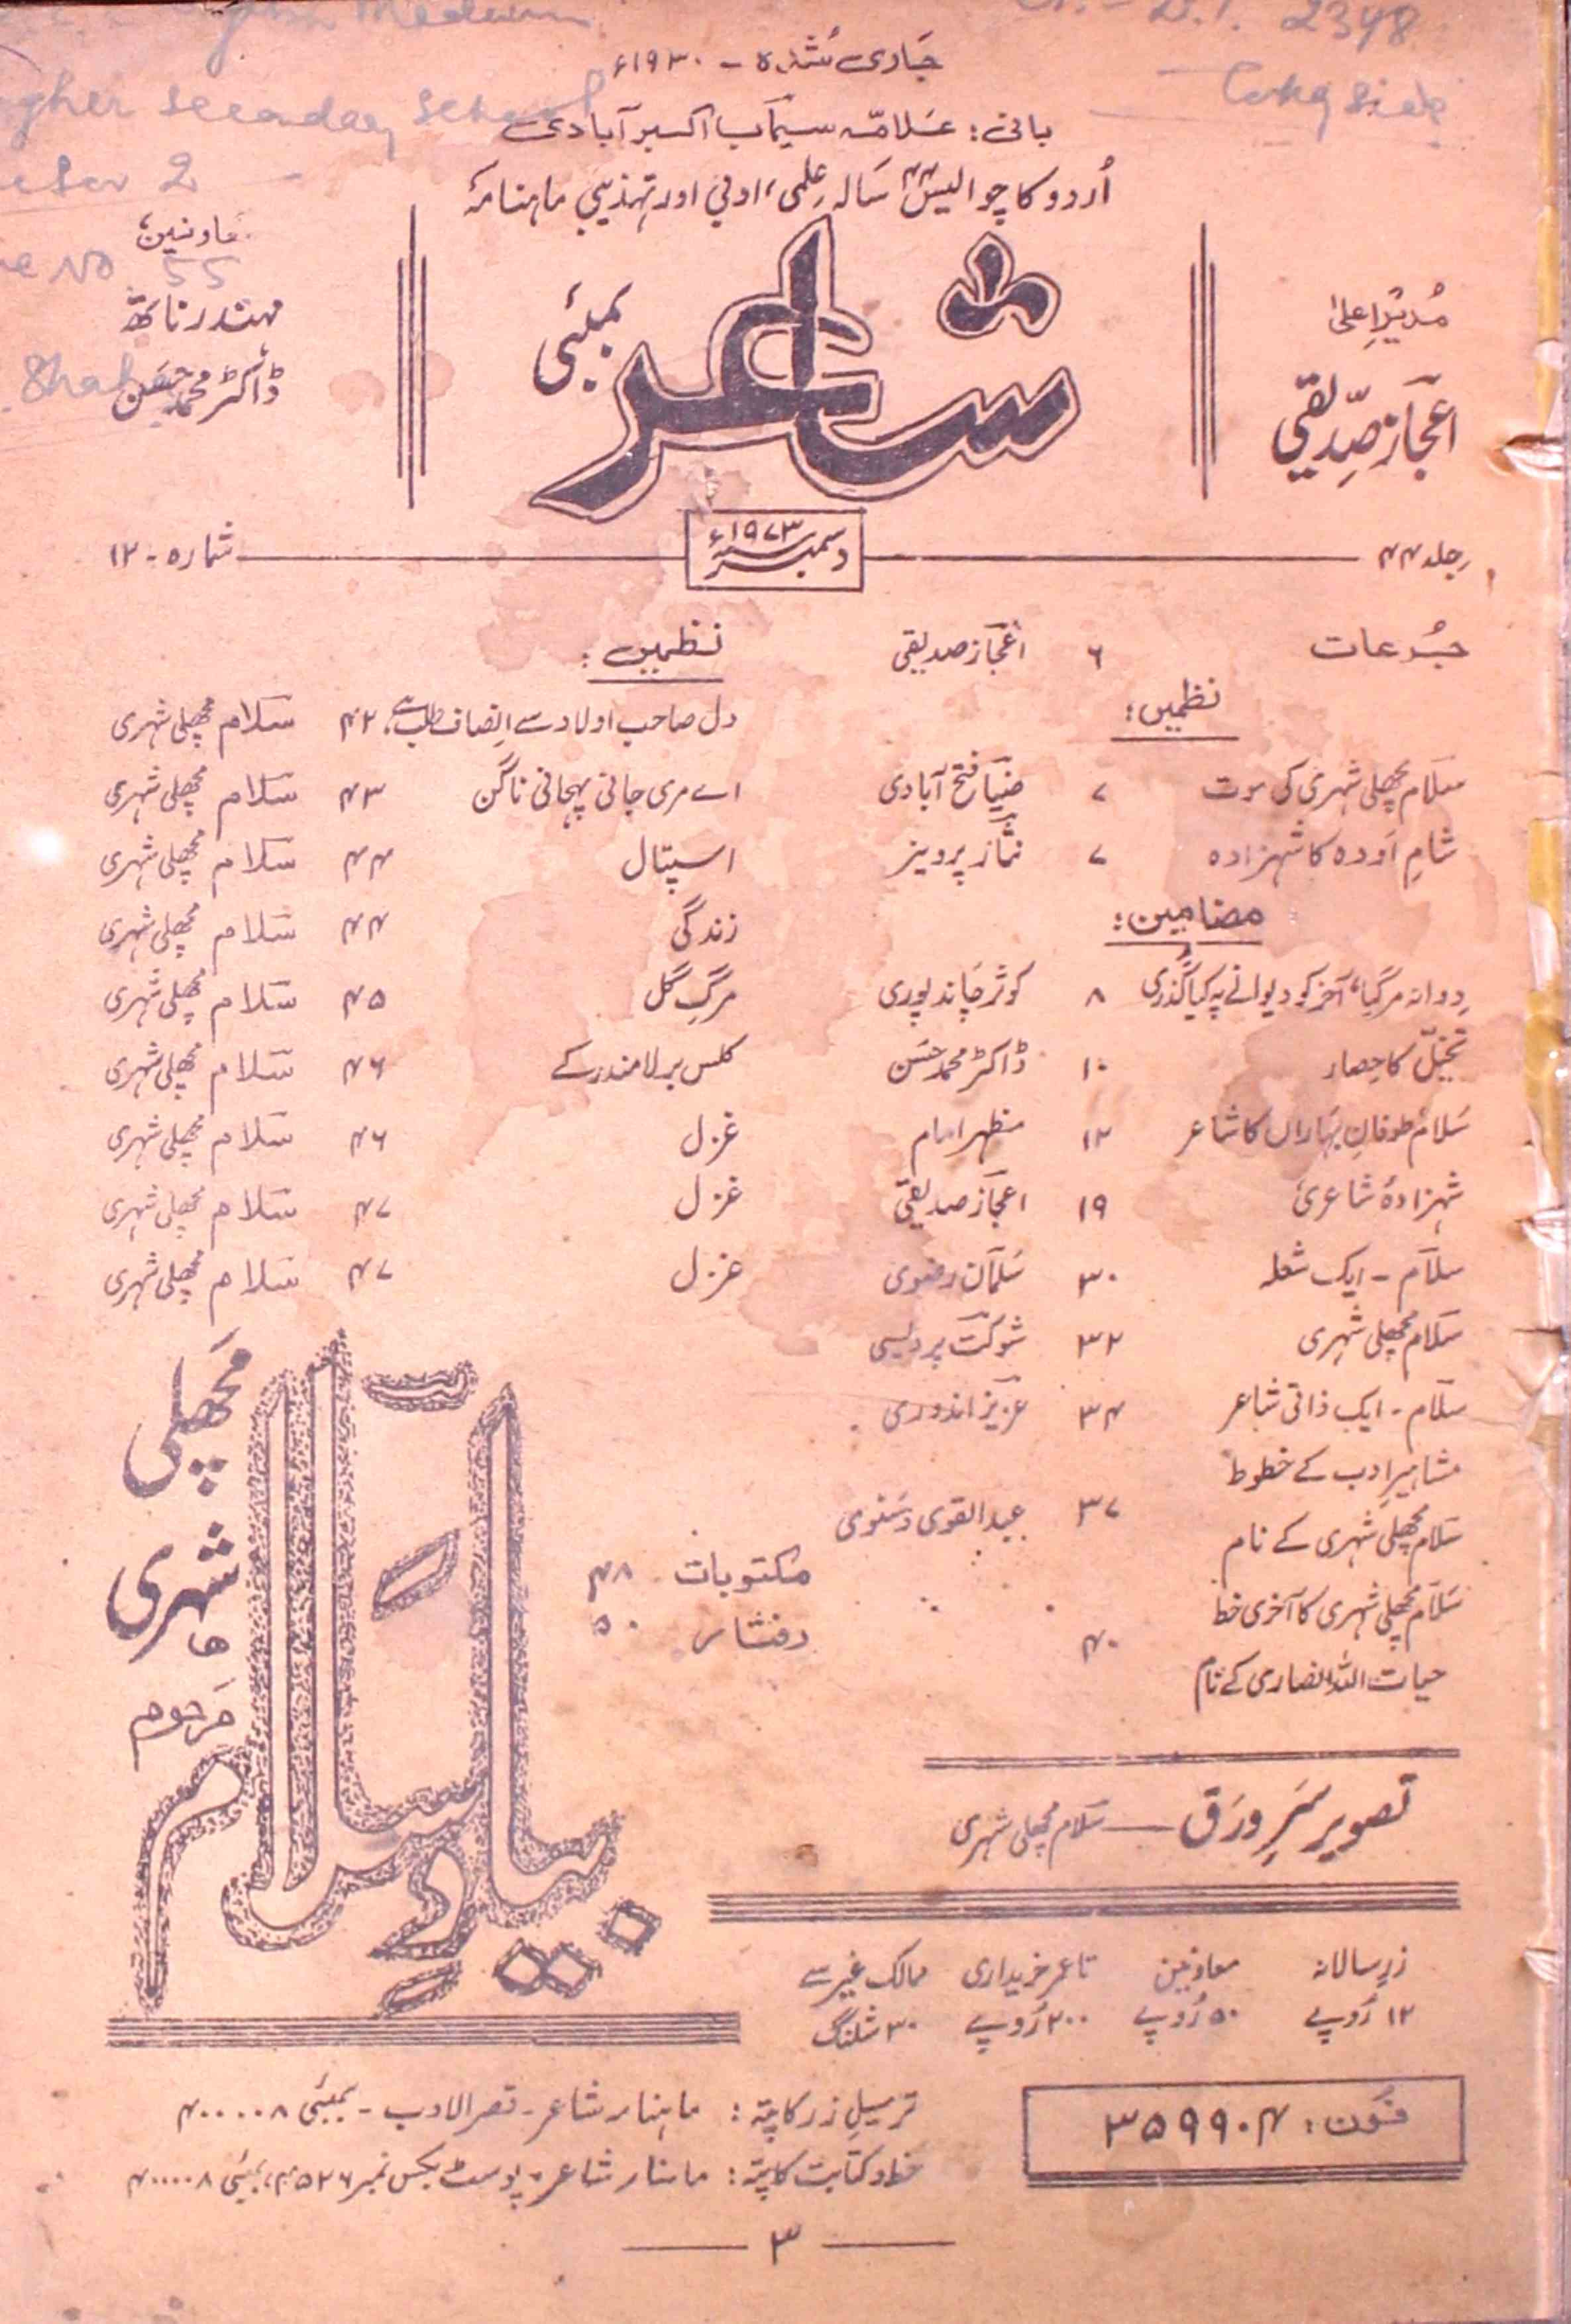 جاری شدہ - ۱۹۳۰ء
بانی: علامہ سیماب اکبرآبادی
اُردو کا چوالیس۴۴ سالہ علمی، ادبی اور تہذیبی ماہنامہ
مُدیرِ اعلیٰ
اعجاز صدیقی
شاعر
بمبئی
معاونین؛
مہندر ناتھ
ڈاکٹر محمد حسن
جلد ۴۴
دسمبر ۱۹۷۳ء
شمارہ - ۱۲
جُرعات ۶ اعجاز صدیقی
نظمیں:
سلام مچھلی شہری کی موت ۷ ضیا فتح آبادی
شامِ اودھ کا شہزادہ ۷ نثار پرویز
مضامین:
دوانہ مر گیا، آخر کو دیوانے پہ کیا گذری ۸ کوثر چاند پوری
تخیّل کا حصار ۱۰ ڈاکٹر محمد حسن
سلام طوفانِ بہاراں کا شاعر ۱۲ مظہر امام
شہزادۂ شاعری ۱۹ اعجاز صدیقی
سلام - ایک شعلہ ۳۰ سلمان رضوی
سلام مچھلی شہری ۳۲ شوکت پردیسی
سلام - ایک ذاتی شاعر ۳۴ عزیز اندوری
مشاہیرِ ادب کے خطوط
سلام مچھلی شہری کے نام ۳۷ عبدالقوی دسنوی
سلام مچھلی شہری کا آخری خط
حیات اللہ انصاری کے نام ۴۰
نظمیں:
دل صاحب اولاد سے انصاف طلب ہے ۴۲ سلام مچھلی شہری
اے مری جانی پہچانی ناگن ۴۳ سلام مچھلی شہری
اسپتال ۴۴ سلام مچھلی شہری
زندگی ۴۴ سلام مچھلی شہری
مرگِ گل ۴۵ سلام مچھلی شہری
کلس برلا مندر کے ۴۶ سلام مچھلی شہری
غزل ۴۶ سلام مچھلی شہری
غزل ۴۷ سلام مچھلی شہری
غزل ۴۷ سلام مچھلی شہری
مکتوبات ۴۸
رفتار ۵۰
بیادِ سلام
مچھلی
شہری
مرحوم
تصویر سرِ ورق — سلام مچھلی شہری
زرِ سالانہ معاونین تاعمر خریداری ممالک غیر سے
۱۲ رُوپے ۵۰ رُوپے ۲۰۰ رُوپے ۳۰ شلنگ
فون: ۳۵۹۹۰۴
ترسیلِ زر کا پتہ: ماہنامہ شاعر - قصر الادب - بمبئی ۴۰۰۰۰۸
خط و کتابت کا پتہ: ماہنامہ شاعر، پوسٹ بکس نمبر ۴۵۲۶، بمبئی ۴۰۰۰۰۸
— ۳ —